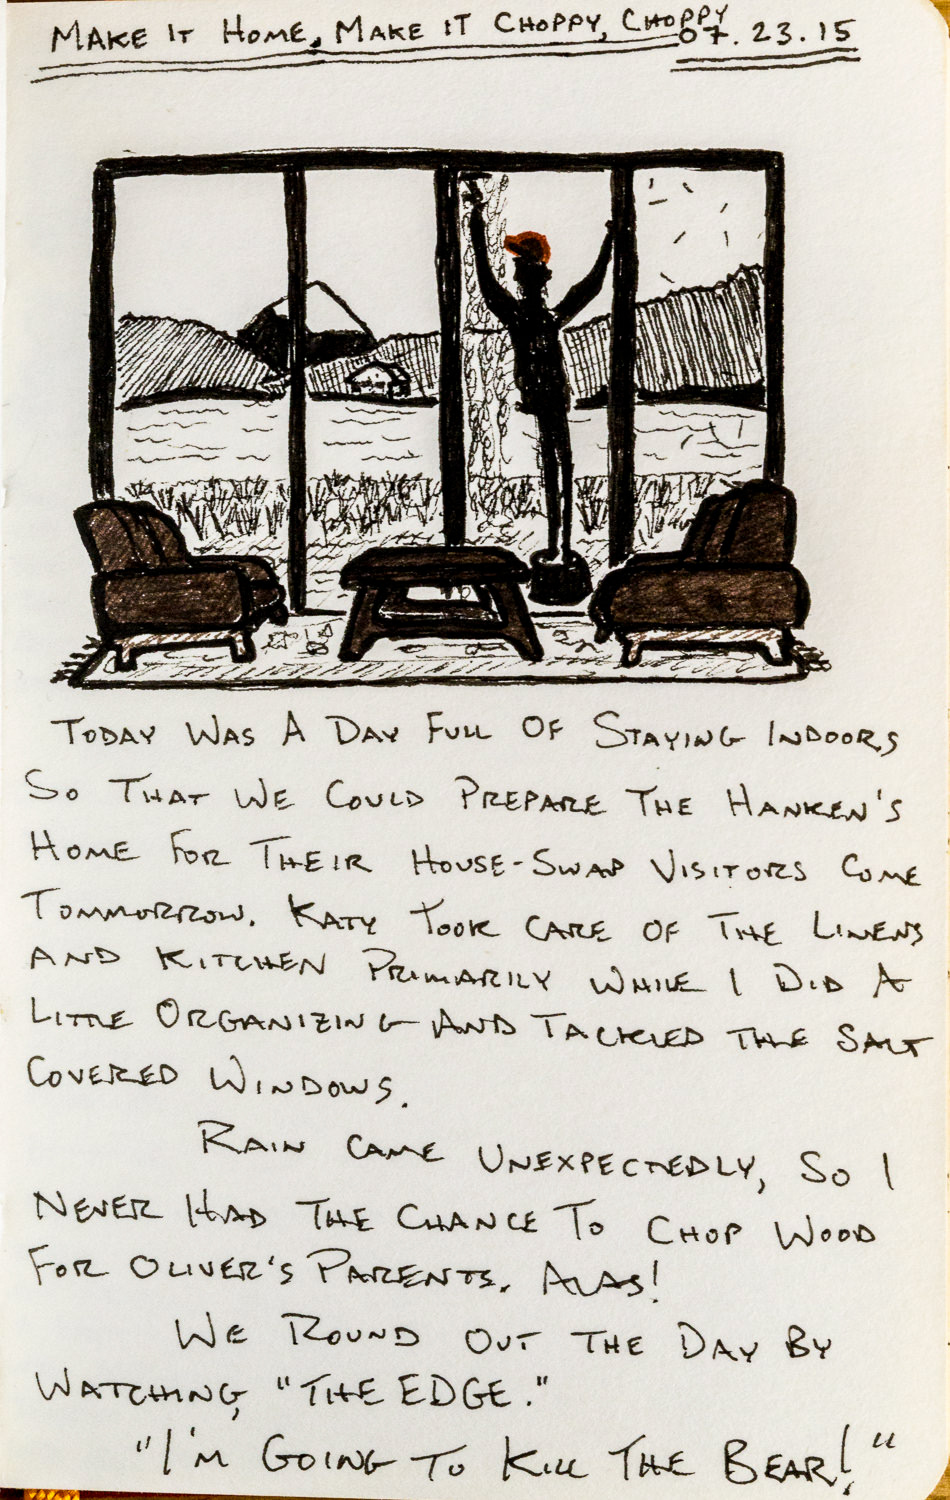 MAKE IT HOME, MAKE IT CHOPPY, CHOPPY 07.23.15
TODAY WAS A DAY FULL OF STAYING INDOORS
SO THAT WE COULD PREPARE THE HANKEN'S
HOME FOR THEIR HOUSE-SWAP VISITORS COME
TOMMORROW. KATY TOOK CARE OF THE LINENS
AND KITCHEN PRIMARILY WHILE I DID A
LITTLE ORGANIZING AND TACKLED THE SALT
COVERED WINDOWS.
RAIN CAME UNEXPECTEDLY, SO I
NEVER HAD THE CHANCE TO CHOP WOOD
FOR OLIVER'S PARENTS. ALAS!
WE ROUND OUT THE DAY BY
WATCHING, "THE EDGE."
"I'M GOING TO KILL THE BEAR!"